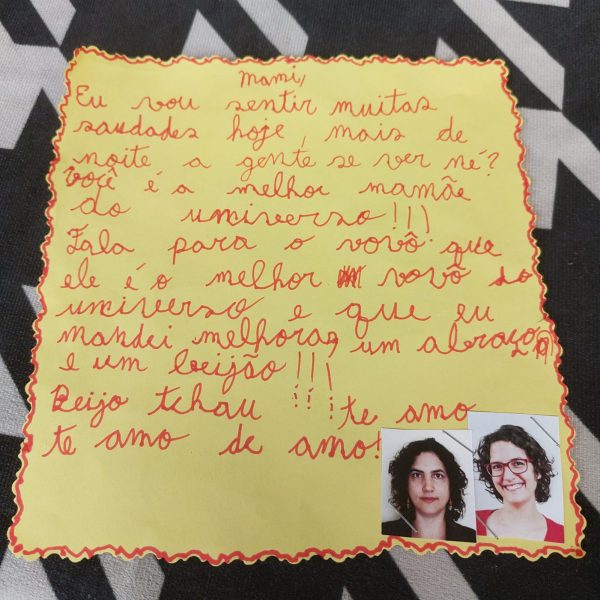 Mami,
Eu vou sentir muitas
saudades hoje, mais de
noite a gente se ver né?
Você é a melhor mamãe
do universo!!!
Fala para o vovô que
ele é o melhor vovô do
universo e que eu
mandei melhoras, um abraço
e um beijão!!!
Beijo tchau!!! te amo
te amo de amo!